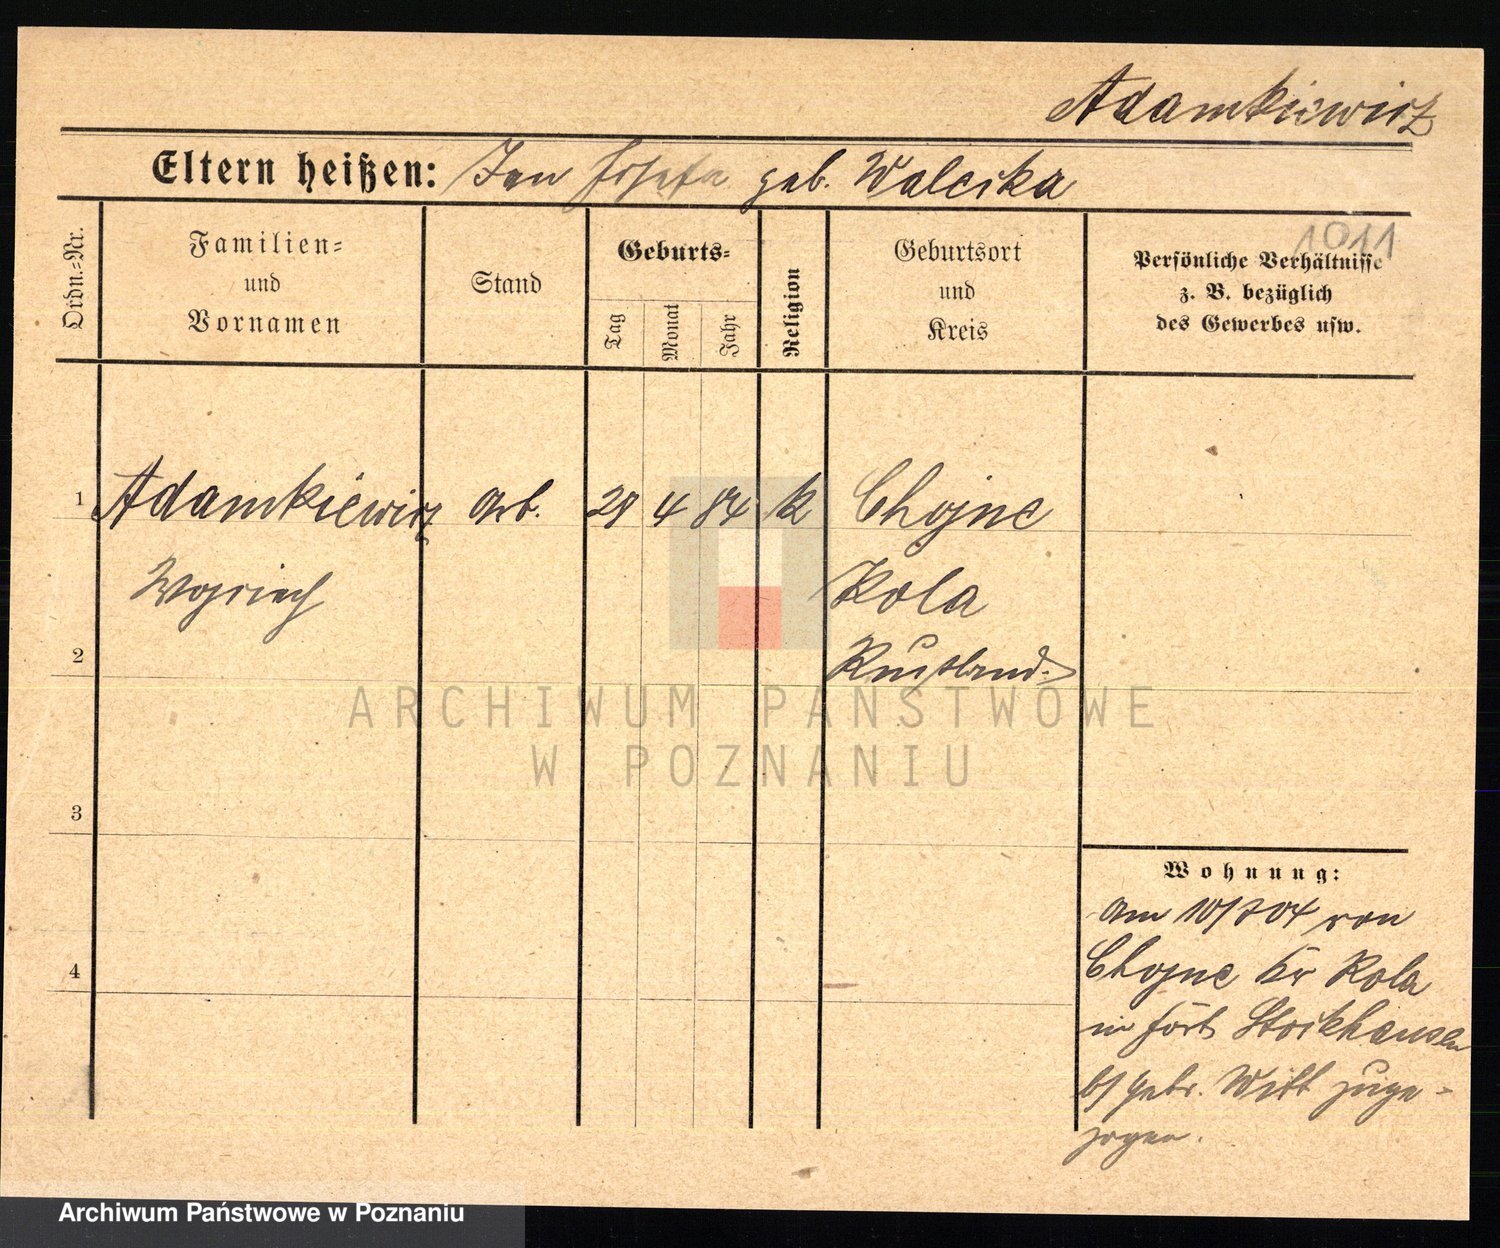 Adamkiewicz
Eltern heißen: Jan Josefa geb. Walcika
1011
Ordn.-Nr.
Familien-
und
Vornamen
Stand
Geburts-
Tag
Monat
Jahr
Religion
Geburtsort
und
Kreis
Persönliche Verhältnisse
z. B. bezüglich
des Gewerbes usw.
1 Adamkiewicz Arb. 29 4 84 k Chojne
Wojciech Kola
2 Russland.
ARCHIWUM PAŃSTWOWE
W POZNANIU
3
Wohnung:
Am 10/7 04 von
Chojne Kr Kola
in Fort Stockhausen
b/ Gebr. Witt zuge-
zogen.
4
Archiwum Państwowe w Poznaniu